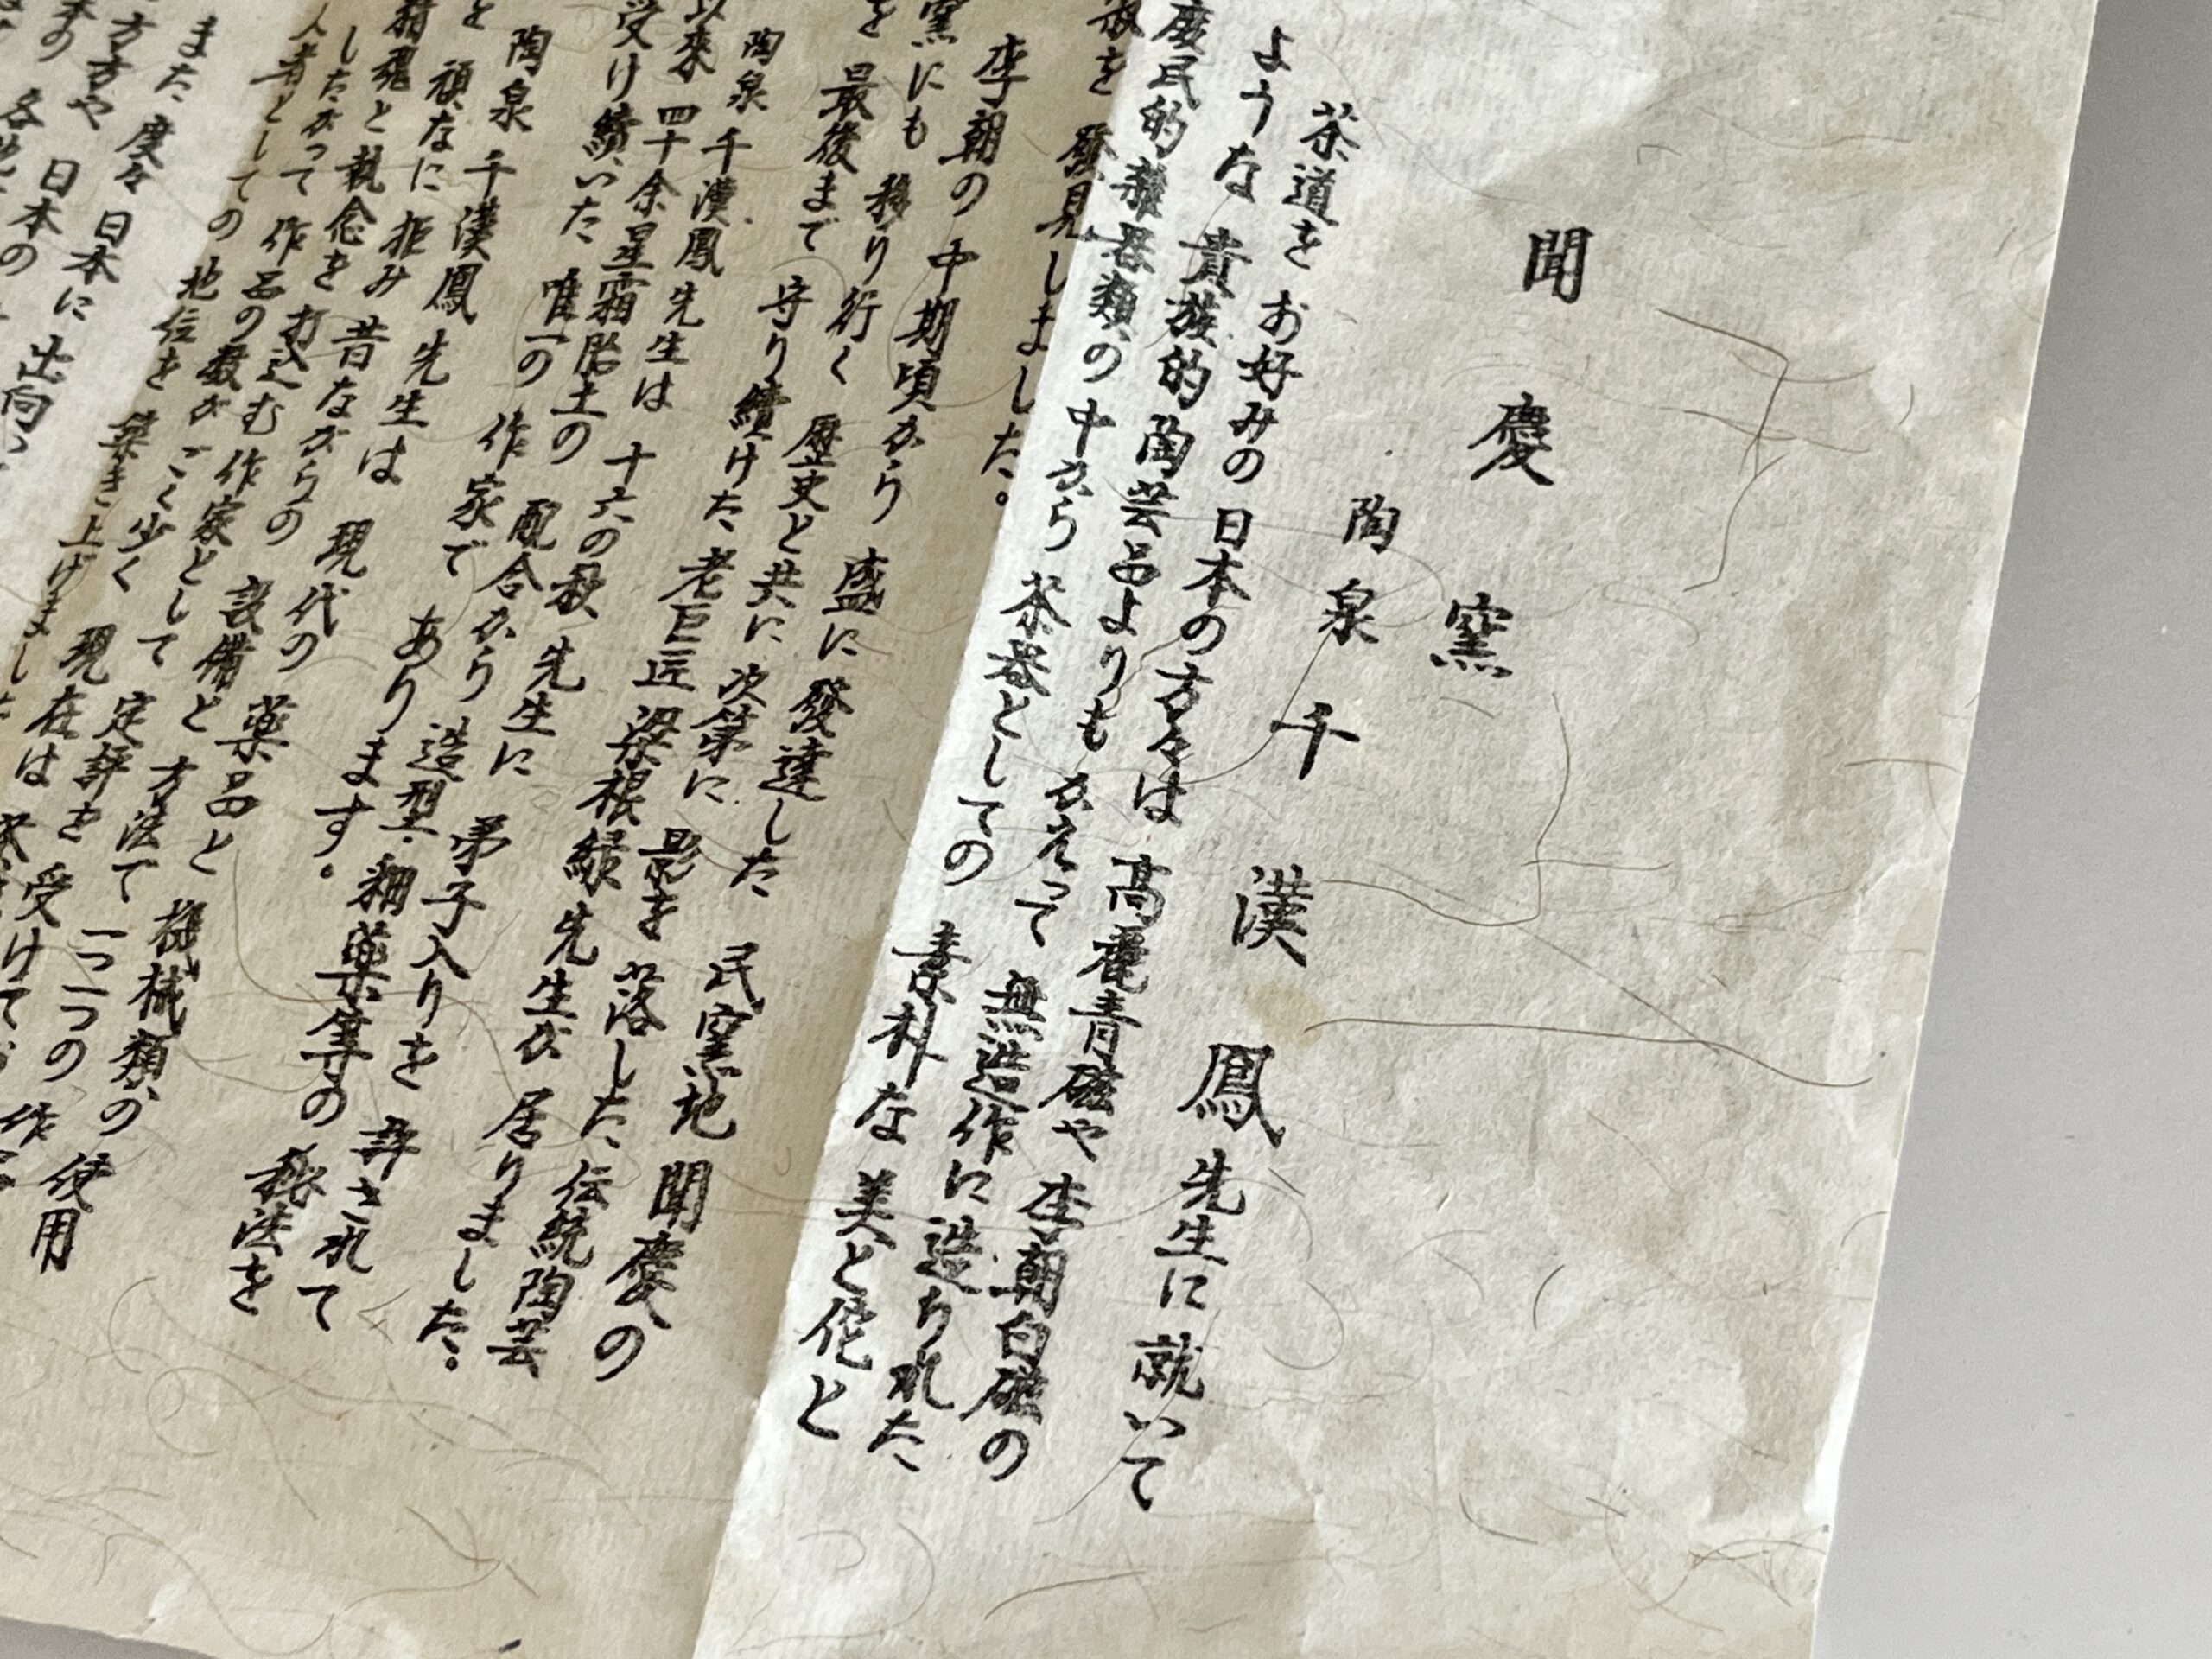 聞慶窯
陶泉 千漢鳳先生に就いて
茶道を お好みの 日本の 方々は 高麗青磁や 李朝白磁の
ような 貴族的 陶芸品よりも かえって 無造作に 造られた
庶民的 雜器類の 中から 茶器としての 素朴な 美と侘と
寂を 發見しました。
李朝の 中期頃から 盛に 發達した 民窯地 聞慶の
窯にも 移り行く 歴史と共に 次第に 影を 落した 伝統陶芸
を 最後まで 守り 續けた 老巨匠 梁根緑 先生が 居りました。
陶泉 千漢鳳 先生は 十六の秋 先生に 弟子入りを 許されて
以來 四十余星霜 胎土の 配合から 造型 釉薬等の 秘法を
受け 續いた 唯一の 作家で あります。
陶泉 千漢鳳 先生は 現代の 薬品と 機械類の 使用
を 頑なに 拒み 昔ながらの 設備と 方法で 一つ一つの 作
精魂と 執念を 打込む 作家として 定評を 受けて
したがって 作品の 数が ごく少く 現在は
人者としての 地位を 築き上げました
また 度々 日本に 出向い
方方や 日本の